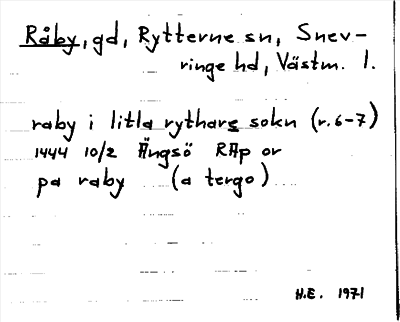 Råby, gd, Rytterne sn, Snev-
ringe hd, Västm. l.
raby i litla rythars sokn (r. 6-7)
1444 10/2 Ängsö RAp or
pa raby (a tergo)
H.E. 1971